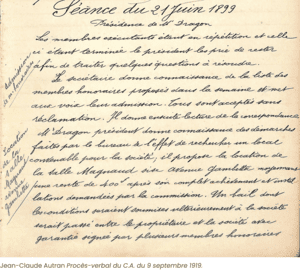 Séance du 21 Juin 1899
Présidence de Mr Dragon
Les membres exécutants étant en répétition et celle
ci étant terminée le président les prie de rester
afin de traiter quelques questions à résoudre.
Le secrétaire donne connaissance de la liste des
membres honoraires proposés dans la semaine et met
aux voix leur admission. Tous sont acceptés sans
réclamation. Il donne ensuite lecture de la correspondance
Mr Dragon président donne connaissance des démarches
faites par le bureau à l'effet de rechercher un local
convenable pour la société, il propose la location de
la salle Magnaud sise Avenue Gambetta moyennant
une rente de 400 après son complet achèvement et
lations demandées par la commission. Un bail dont
les conditions seraient soumises ultérieurement à la société
serait passé entre le propriétaire et la société avec
garanties signées par plusieurs membres honoraires
Admission
de
honoraires
Location
de
la salle
Magnaud
Avenue
Gambetta
Jean-Claude Autran Procès-verbal du C.A. du 9 septembre 1919.